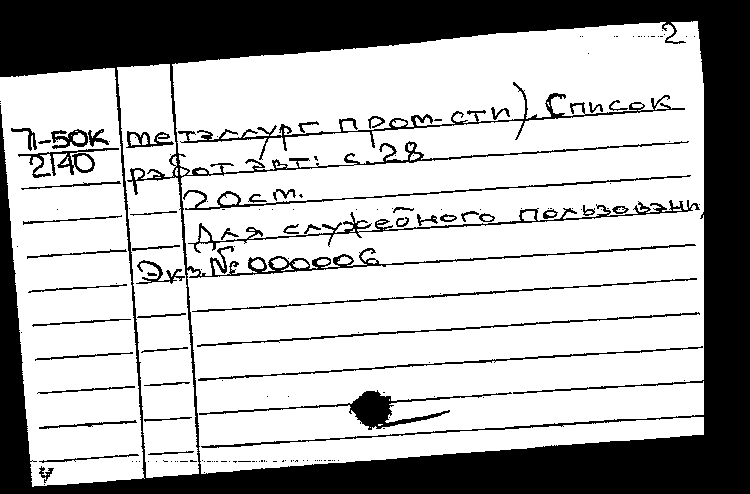 2
П-50К метэллург пром-сти). Список
2140 работ авт: с. 28
20 см.
Для служебного пользовани
Экз. № 000006